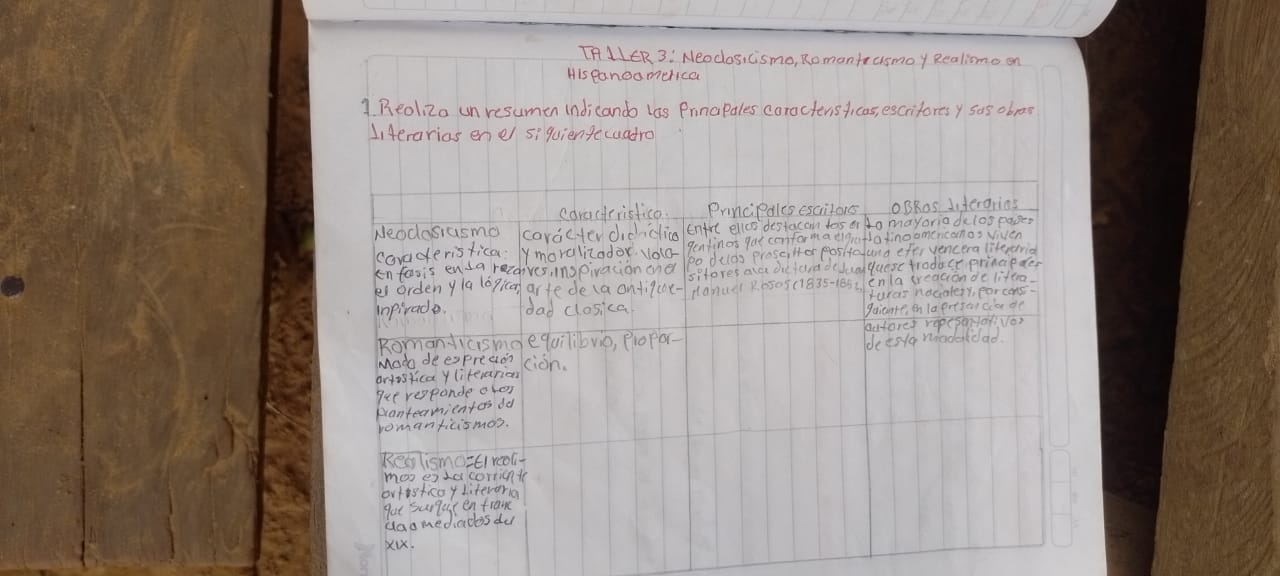 TALLER 3: Neoclasicismo, Romanticismo y Realismo en
Hispanoametica
1. Realiza un resumen indicando las Principales caracteristicas, escritores y sus obras
Literarias en el siguiente cuadro
Caracteristica. Principales escritors OBRAS Literarias
Neoclasicismo
caracteristica:
Enfasis en la
el orden y la lógica,
Inpirado.
carácter didactico
y moralizador.
Inspiración en el
arte de la antigue-
dad clasica.
Entre ellos destacan los
gentinos que conforma el
po de los proscritos
Manuel Rosas (1835-1852
La mayoria de los paises
latinoamericanos viven
una efervencera literaria
que se traduce
en la creación de litera-
turas nacionales y, por consi-
guiente, en la presencia de
autores representativos
de esta modalidad.
Romanticismo
Modo de expreción
artostica y literarias
que responde a los
planteamientos del
romanticismos.
equilibrio, propor-
ción.
Realismo = El reali-
mos es la corriente
artostico y Literaria
que surgue en franc
cia a mediados del
XIX.